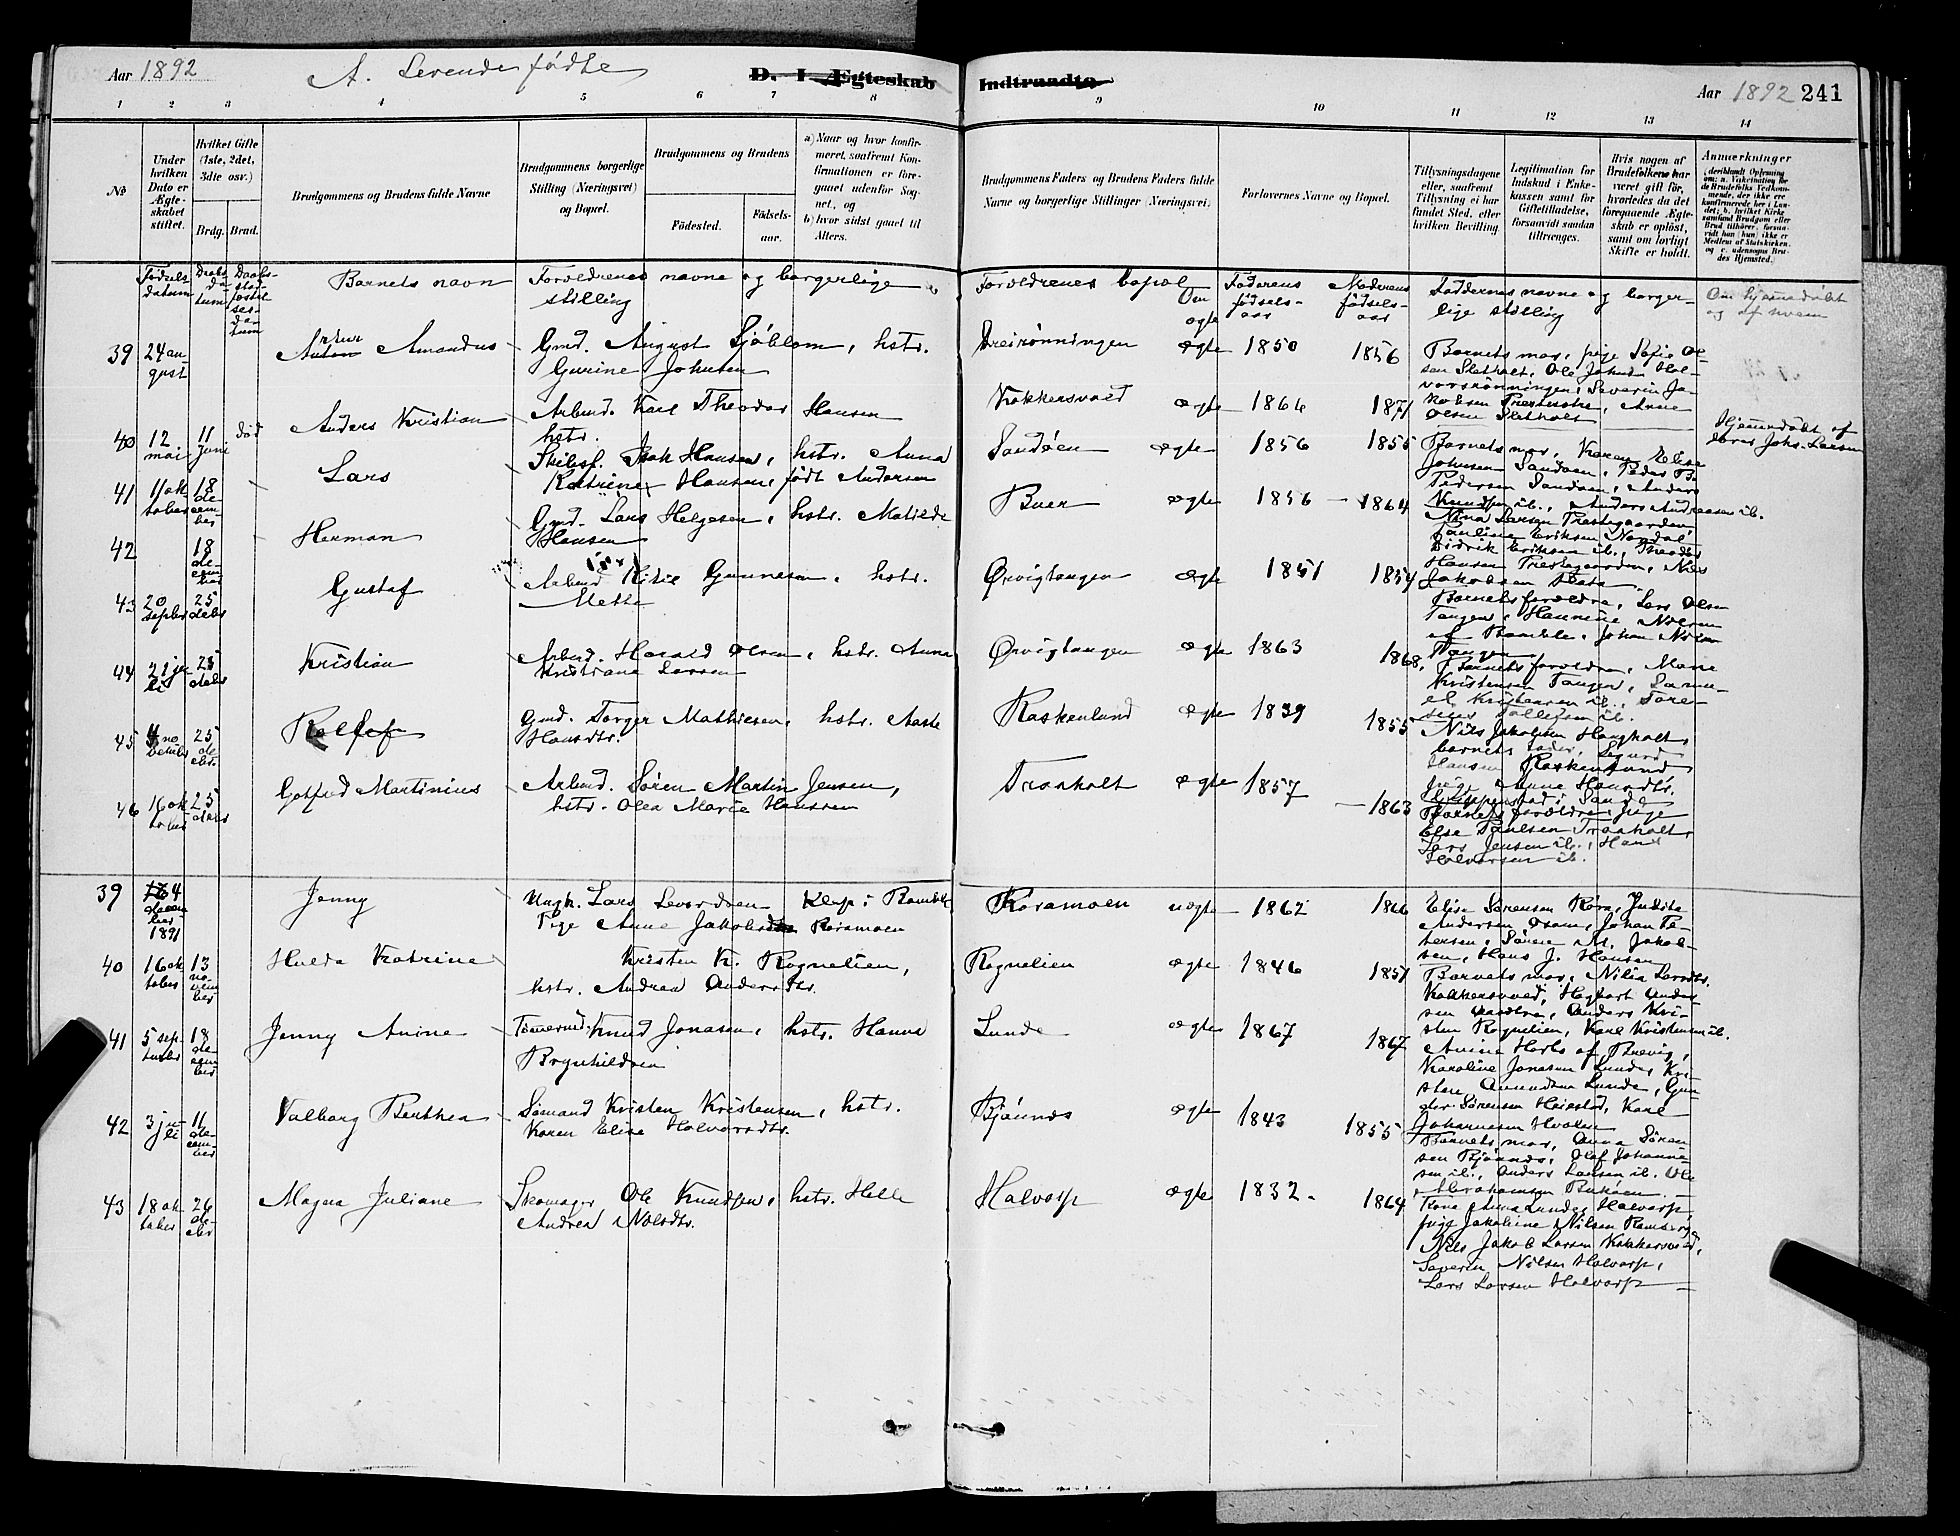 Aar 1892
A. Levende fødte
D. I. Ægteskab Indtraadte
Aar 1892 241
1 2 3 4 5 6 7 8 9 10 11 12 13 14
No
Under hvilken Dato er Ægteskabet stiftet.
Hvilket Gifte (1ste, 2det, 3die osv.)
Brdg. Brud.
Brudgommens og Brudens fulde Navne
Brudgommens borgerlige Stilling (Næringsvei) og Bopæl.
Brudgommens og Brudens
Fødested.
Fødselsaar.
a) Naar og hvor konfirmeret, saafremt Konfirmationen er foregaaet udenfor Sognet, og
b) hvor sidst gaaet til Alters.
Brudgommens Faders og Brudens Faders fulde Navne og borgerlige Stillinger (Næringsvei).
Forlovernes Navne og Bopæl.
Tillysningsdagene eller, saafremt Tillysning ei har fundet Sted, efter hvilken Bevilling.
Legitimation for Indskud i Enkekassen samt for Giftetilladelse, forsaavidt saadan tiltrænges.
Hvis nogen af Brudefolkene har været gift før, hvorledes da det foregaaende Ægteskab er opløst, samt om lovligt Skifte er holdt.
Anmerkninger
Fødselsdatum
Daabsdatum
Barnets navn
Forældrenes navne og borgerlige stilling
Forældrenes bopæl
Om ægte
Faderens fødselsaar
Moderens fødselsaar
Faddernes navne og borgerlige stilling
Om hjemmedøbt og af hvem
39 24 august Amandus Gmd. August Sjöblom, hstr. Gurine Johnsen
ægte 1850 1856
Barnets mor, pige Sofie Olsen Sletholt, Ole Johns. Halvorsrønningen, Severin Jakobsen, Anne Olsen Sletholt
40 12 mai 11 Juni død Anders Kristian Arbmd. Karl Theodor Hansen hstr.
Kokkersvold ægte 1864 1871
Hjemmedøbt af Johs. Larsen
41 11 oktober 18 december Lars Skibsf. Isak Hansen, hstr. Anna Katrine Hansen, født Andersen
Sandøen ægte 1856 1855
Barnets mor, Karen Elise Johnsen Sandøen, Peder Pedersen Sandøen, Anders Knudsen ib., Anders Andreasen ib.
42 18 december Herman Gmd. Lars Helgesen, hstr. Matilde Hansen
Buer ægte 1856 1864
Nina Larsen Prestegaarden, Pauline Eriksen Nordal, Didrik Eriksen ib., Theodor Hansen Prestegaarden, Nils Jakobsen
43 20 septbr 25 debr Gustaf Arbmd. Kitil Gunnesen, hstr. Mette
Ørvigtangen ægte 1851 1854
Barnets forældre, Lars Olsen Tangen, Hannine Nilsen af Bamble, Johan Nilsen Tangen
44 21 juli 25 debr Kristian Arbmd. Harald Olsen, hstr. Anna Kristiane Larsen
Ørvigtangen ægte 1863 1868
Barnets forældre, Marie Kristensen Tangen, Samuel Kristensen ib.
45 4 november 25 debr. Gmd. Torger Mathiesen, hstr. Aaste Hansdtr.
Raskenlund ægte 1839 1855
Nils Jakobsen Haugholt, barnets fader, Segurd Hansen Raskenlund, pige Anne Hansdtr.
46 16 oktober 25 debr Gotfred Martinius Arbmd. Søren Martin Jensen, hstr. Olea Marie Hanssen
Traaholt ægte 1857 1863
Barnets forældre, pige Else Paulsen Traaholt, Lars Jensen ib., Hans Halvorsen ib.
39 4 december 1891 Jenny Ungk. Lars Levordsen Klep i Bamble
Pige Anne Jakobsdtr Røramoen
Røramoen uægte 1862 1866
Elise Sørensen Røra, Judita Andersen, Johan Petersen, Søren M. Jakobsen, Hans J. Hansen
40 16 oktober 13 november Hulda Katrine Kristen K. Rognelien, hstr. Andrea Andersdtr.
Rognelien ægte 1846 1851
Barnets mor, Nilia Larsdtr. Kokkersvold, Hegbart Andersen, Anders Kristen Rognelien, Karl Kristensen ib.
41 5 september 18 december Jenny Anine Tømermd. Knud Jonasen, hstr. Hanna Brynhildsen
Lunde ægte 1867 1867
Anine Hals af Brevig, Karoline Jonasen Lunde, Kristen Amundsen Lunde, Gunder Sørensen Heiestad, Karl Johannesen Hvalen
42 3 juli 11 december Valborg Berthea Sømand Kristen Kristensen, hstr. Karen Elise Halvorsdtr.
Bjønnes ægte 1843 1855
Barnets mor, Anna Sørensen Bjønnes, Olaf Johannesen ib., Anders Larsen ib. Ole Abrahamsen
43 18 oktober 26 debr Magna Juliane Skomager Ole Knudsen, hstr. Helle Andrea Nilsdtr.
Halvarp ægte 1832 1864
Kone Anna Lunde, Halvarp, pige Jakobine Nilsen Ramberg, Nils Jakob Larsen Kokkersvold, Severin Nilsen Halvarp, Lars Larsen Halvarp